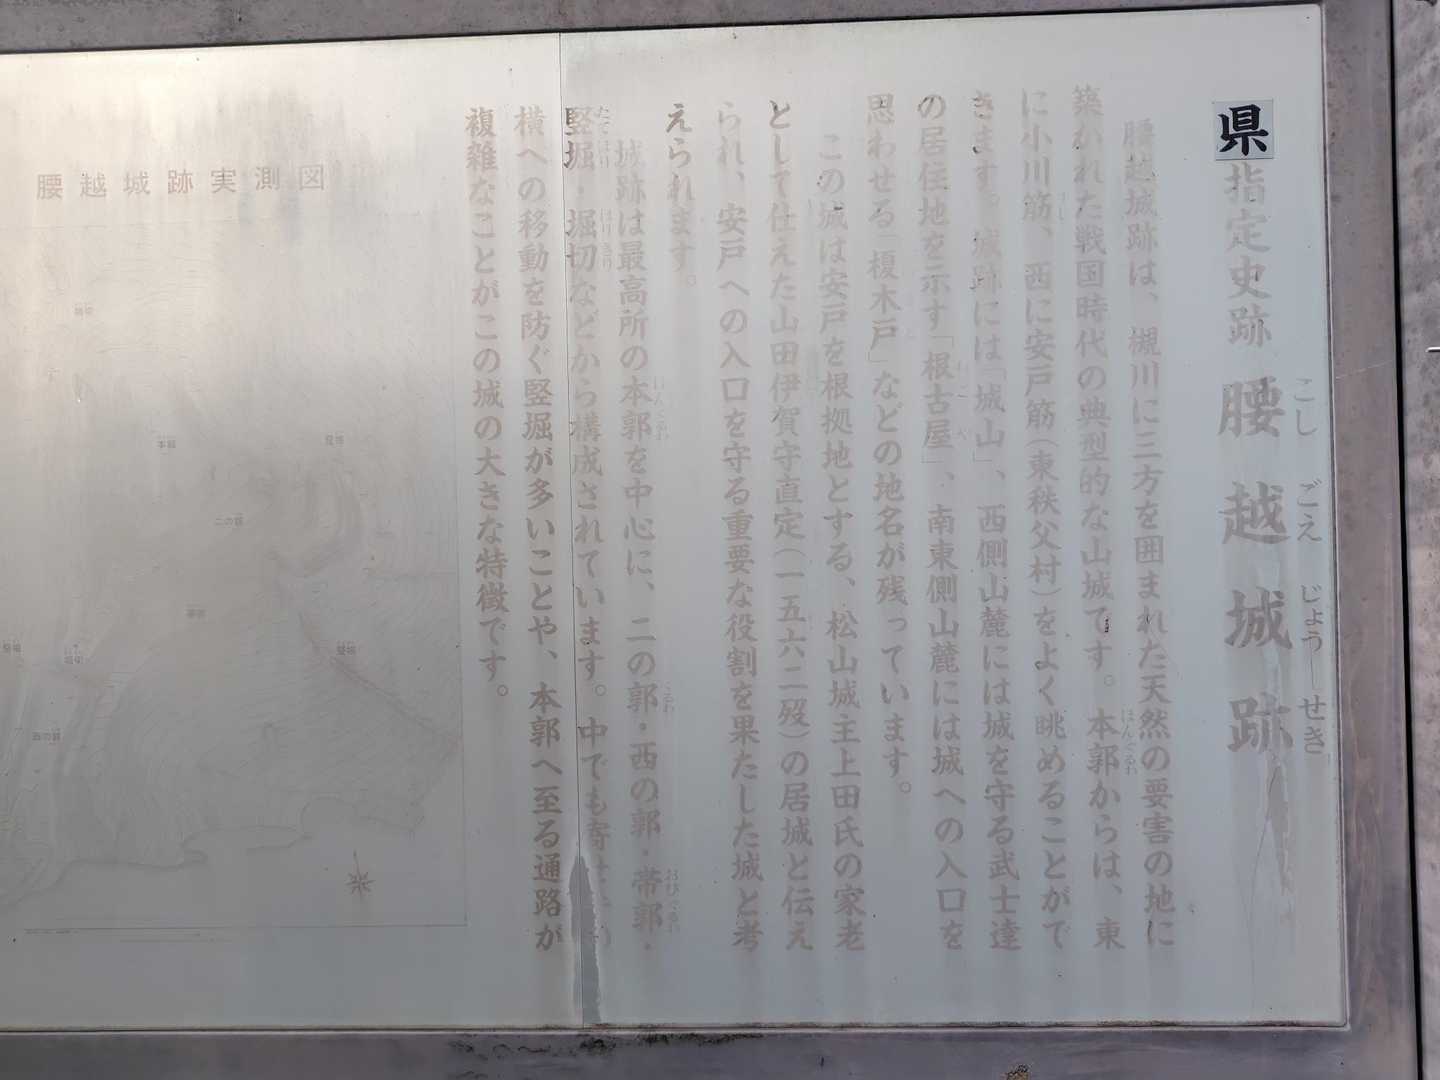 県指定史跡 腰越城跡
こし ごえ じょう せき
腰越城跡は、槻川に三方を囲まれた天然の要害の地に
築かれた戦国時代の典型的な山城です。本郭からは、東
ほんぐるわ
に小川筋、西に安戸筋(東秩父村)をよく眺めることがで
きます。城跡には「城山」、西側山麓には城を守る武士達
の居住地を示す「根古屋」、南東側山麓には城への入口を
ねごや
思わせる「榎木戸」などの地名が残っています。
この城は安戸を根拠地とする、松山城主上田氏の家老
として仕えた山田伊賀守直定(一五六二歿)の居城と伝え
られ、安戸への入口を守る重要な役割を果たした城と考
えられます。
城跡は最高所の本郭を中心に、二の郭・西の郭・帯郭・
ほんぐるわ くるわ おびぐるわ
竪堀・堀切などから構成されています。中でも
たてぼり ほりきり
横への移動を防ぐ竪堀が多いことや、本郭へ至る通路が
複雑なことがこの城の大きな特徴です。
腰越城跡実測図
堀切
本郭
竪堀
二の郭
竪堀
堀切
西の郭